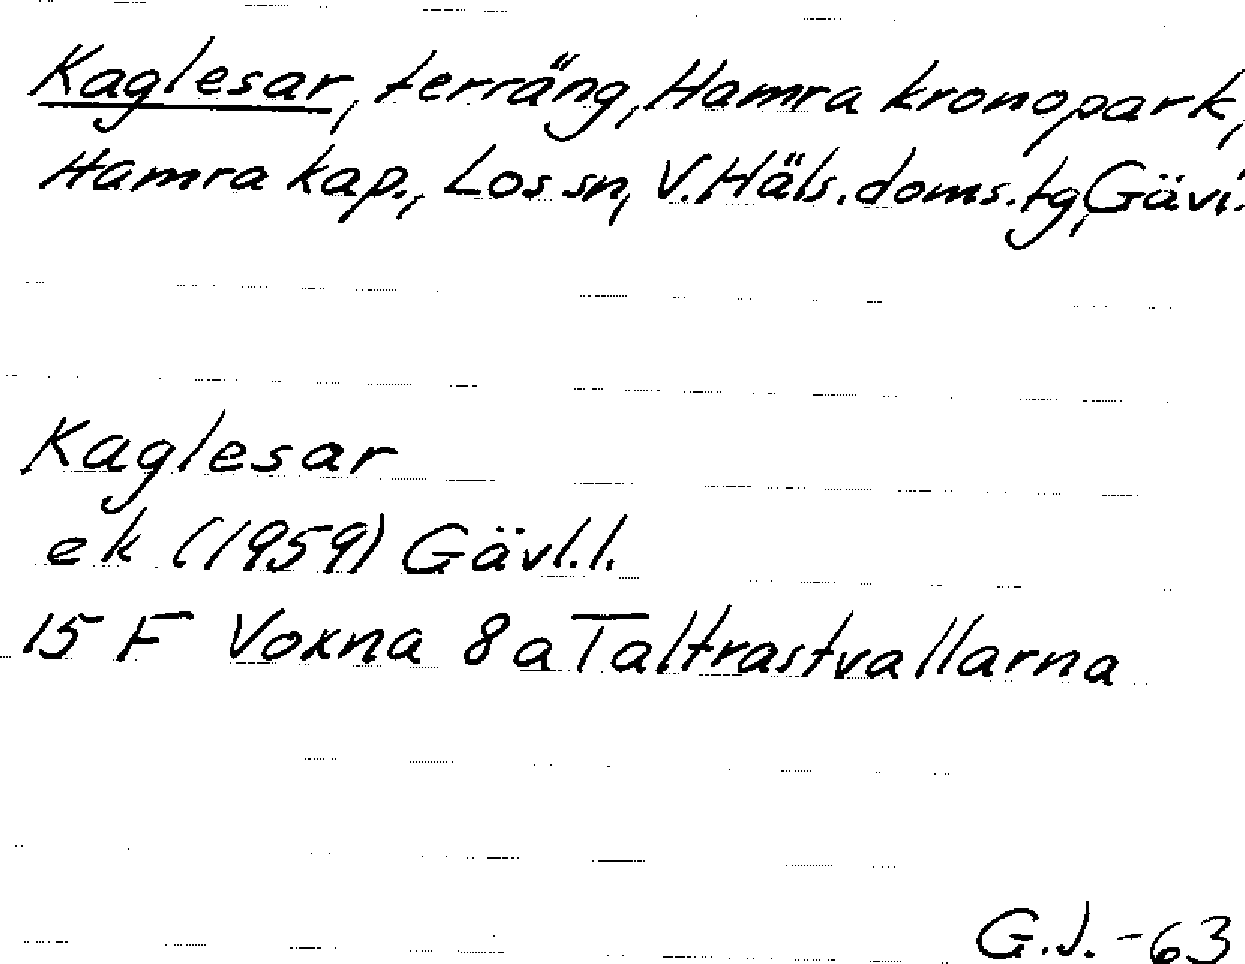 Kaglesar, terräng, Hamra kronopark,
Hamra kap., Los sn, V. Häls. doms. tg, Gävl.
Kaglesar
ek (1959) Gävl. l.
15 F Voxna 8 a Taltrastvallarna
G.J. -63